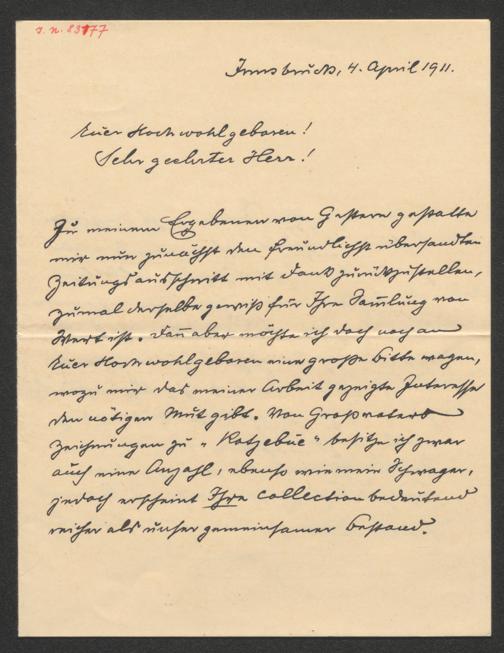 J. N. 83177
Innsbruck, 4. April 1911.
Euer Hochwohlgeboren!
Sehr geehrter Herr!
Zu meinem Ergebenen von Gestern gestatte
mir nun zunächst den freundlichst übersandten
Zeitungsausschnitt mit Dank zurückzustellen,
zumal derselbe gewiß für Ihre Sam̄lung von
Wert ist. Dan̄ aber möchte ich doch noch an
Euer Hochwohlgeboren eine große Bitte wagen,
wozu mir das meiner Arbeit gezeigte Interesse
den nötigen Mut gibt. Von Großvaters
Zeichnungen zu „Kotzebue“ besitze ich zwar
auch eine Anzahl, ebenso wie mein Schwager,
jedoch erscheint Ihre Collection bedeutend
reicher als unser gemeinsamer Bestand.